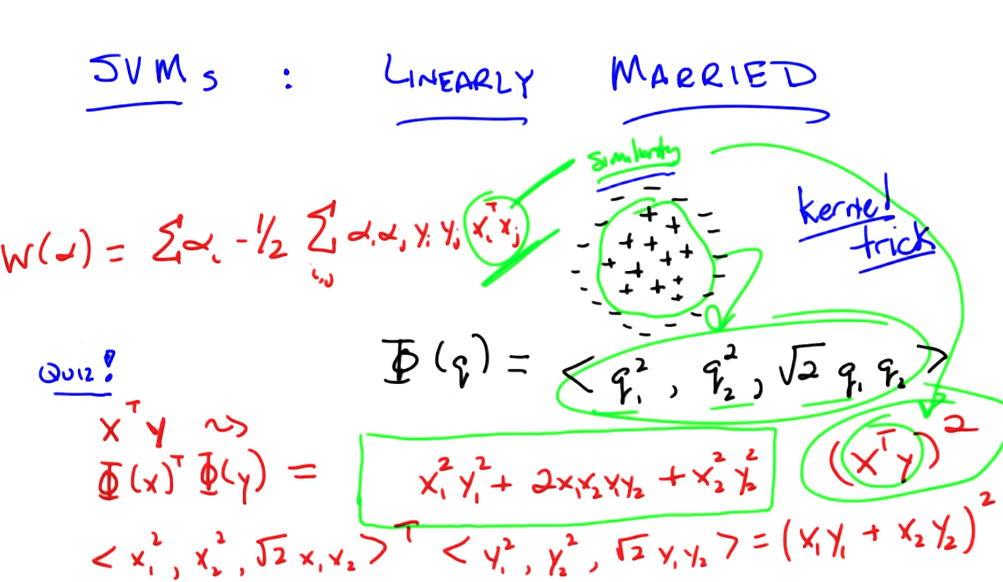 SVMs : LINEARLY MARRIED
similarity
kernel
trick
W(α) = Σαᵢ - 1/2 Σᵢ,ⱼ αᵢαⱼ yᵢ yⱼ xᵢᵀxⱼ
Φ(q) = < q₁², q₂², √2 q₁ q₂ >
QUIZ!
xᵀy ~>
Φ(x)ᵀ Φ(y) = x₁²y₁² + 2x₁x₂y₁y₂ + x₂²y₂² (xᵀy)²
< x₁², x₂², √2 x₁x₂ >ᵀ < y₁², y₂², √2 y₁y₂ > = (x₁y₁ + x₂y₂)²